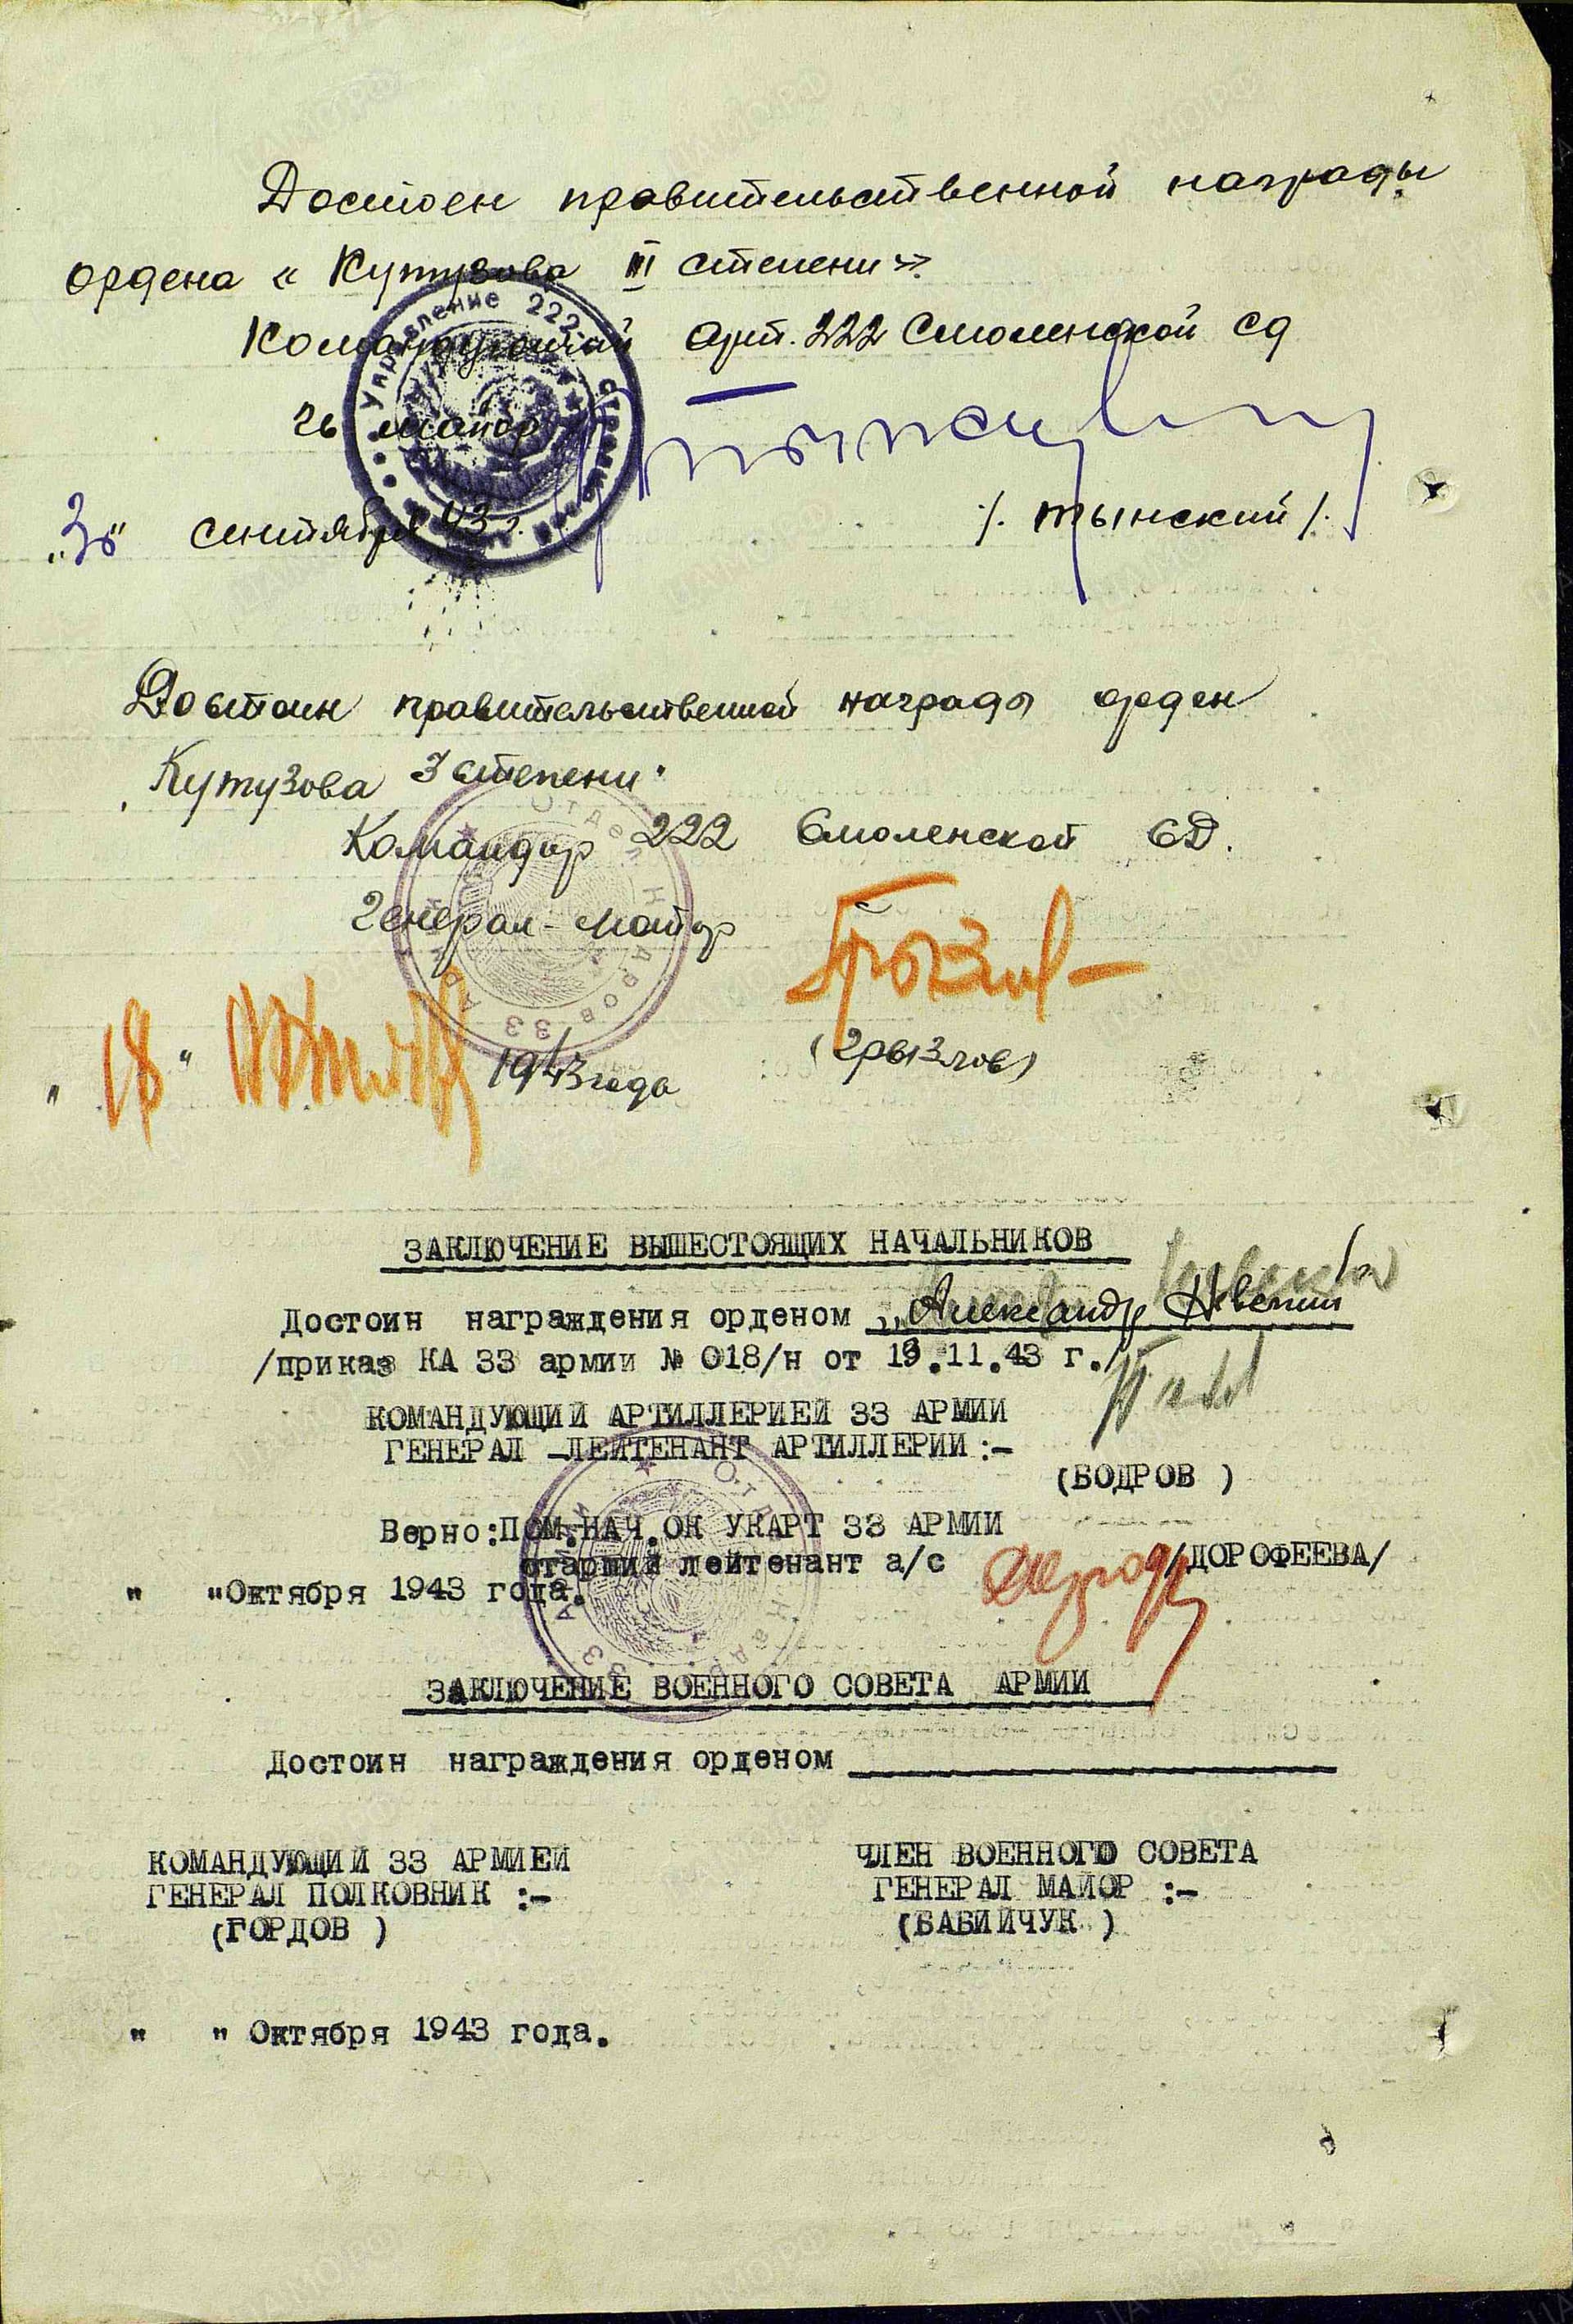 Достоен правительственной награды
ордена « Кутузова III степени »
Командующий арт. 222 Смоленской сд
гв майор
"30" сентября 43 г. /. Тынский /.
Управление 222
Достоин правительственной награды орден
Кутузова 3 степени.
Командир 222 Смоленской СД.
Генерал-майор
Грызлов
(Грызлов)
" 18 " Октября 1943 года
Отдел кадров 33 Армии
ЗАКЛЮЧЕНИЕ ВЫШЕСТОЯЩИХ НАЧАЛЬНИКОВ
Достоин награждения орденом „Александр Невский
/приказ КА 33 армии № 018/н от 19.11.43 г./
КОМАНДУЮЩИЙ АРТИЛЛЕРИЕЙ 33 АРМИИ
ГЕНЕРАЛ -ЛЕЙТЕНАНТ АРТИЛЛЕРИИ :-
(БОДРОВ )
Верно:ПОМ.НАЧ.ОК УКАРТ 33 АРМИИ
старший лейтенант а/с /ДОРОФЕЕВА/
" "Октября 1943 года.
Отдел Кадров 33 Армии
ЗАКЛЮЧЕНИЕ ВОЕННОГО СОВЕТА АРМИИ
Достоин награждения орденом
КОМАНДУЮЩИЙ 33 АРМИЕЙ ЧЛЕН ВОЕННОГО СОВЕТА
ГЕНЕРАЛ ПОЛКОВНИК :- ГЕНЕРАЛ МАЙОР :-
(ГОРДОВ ) (БАБИЙЧУК )
" " Октября 1943 года.